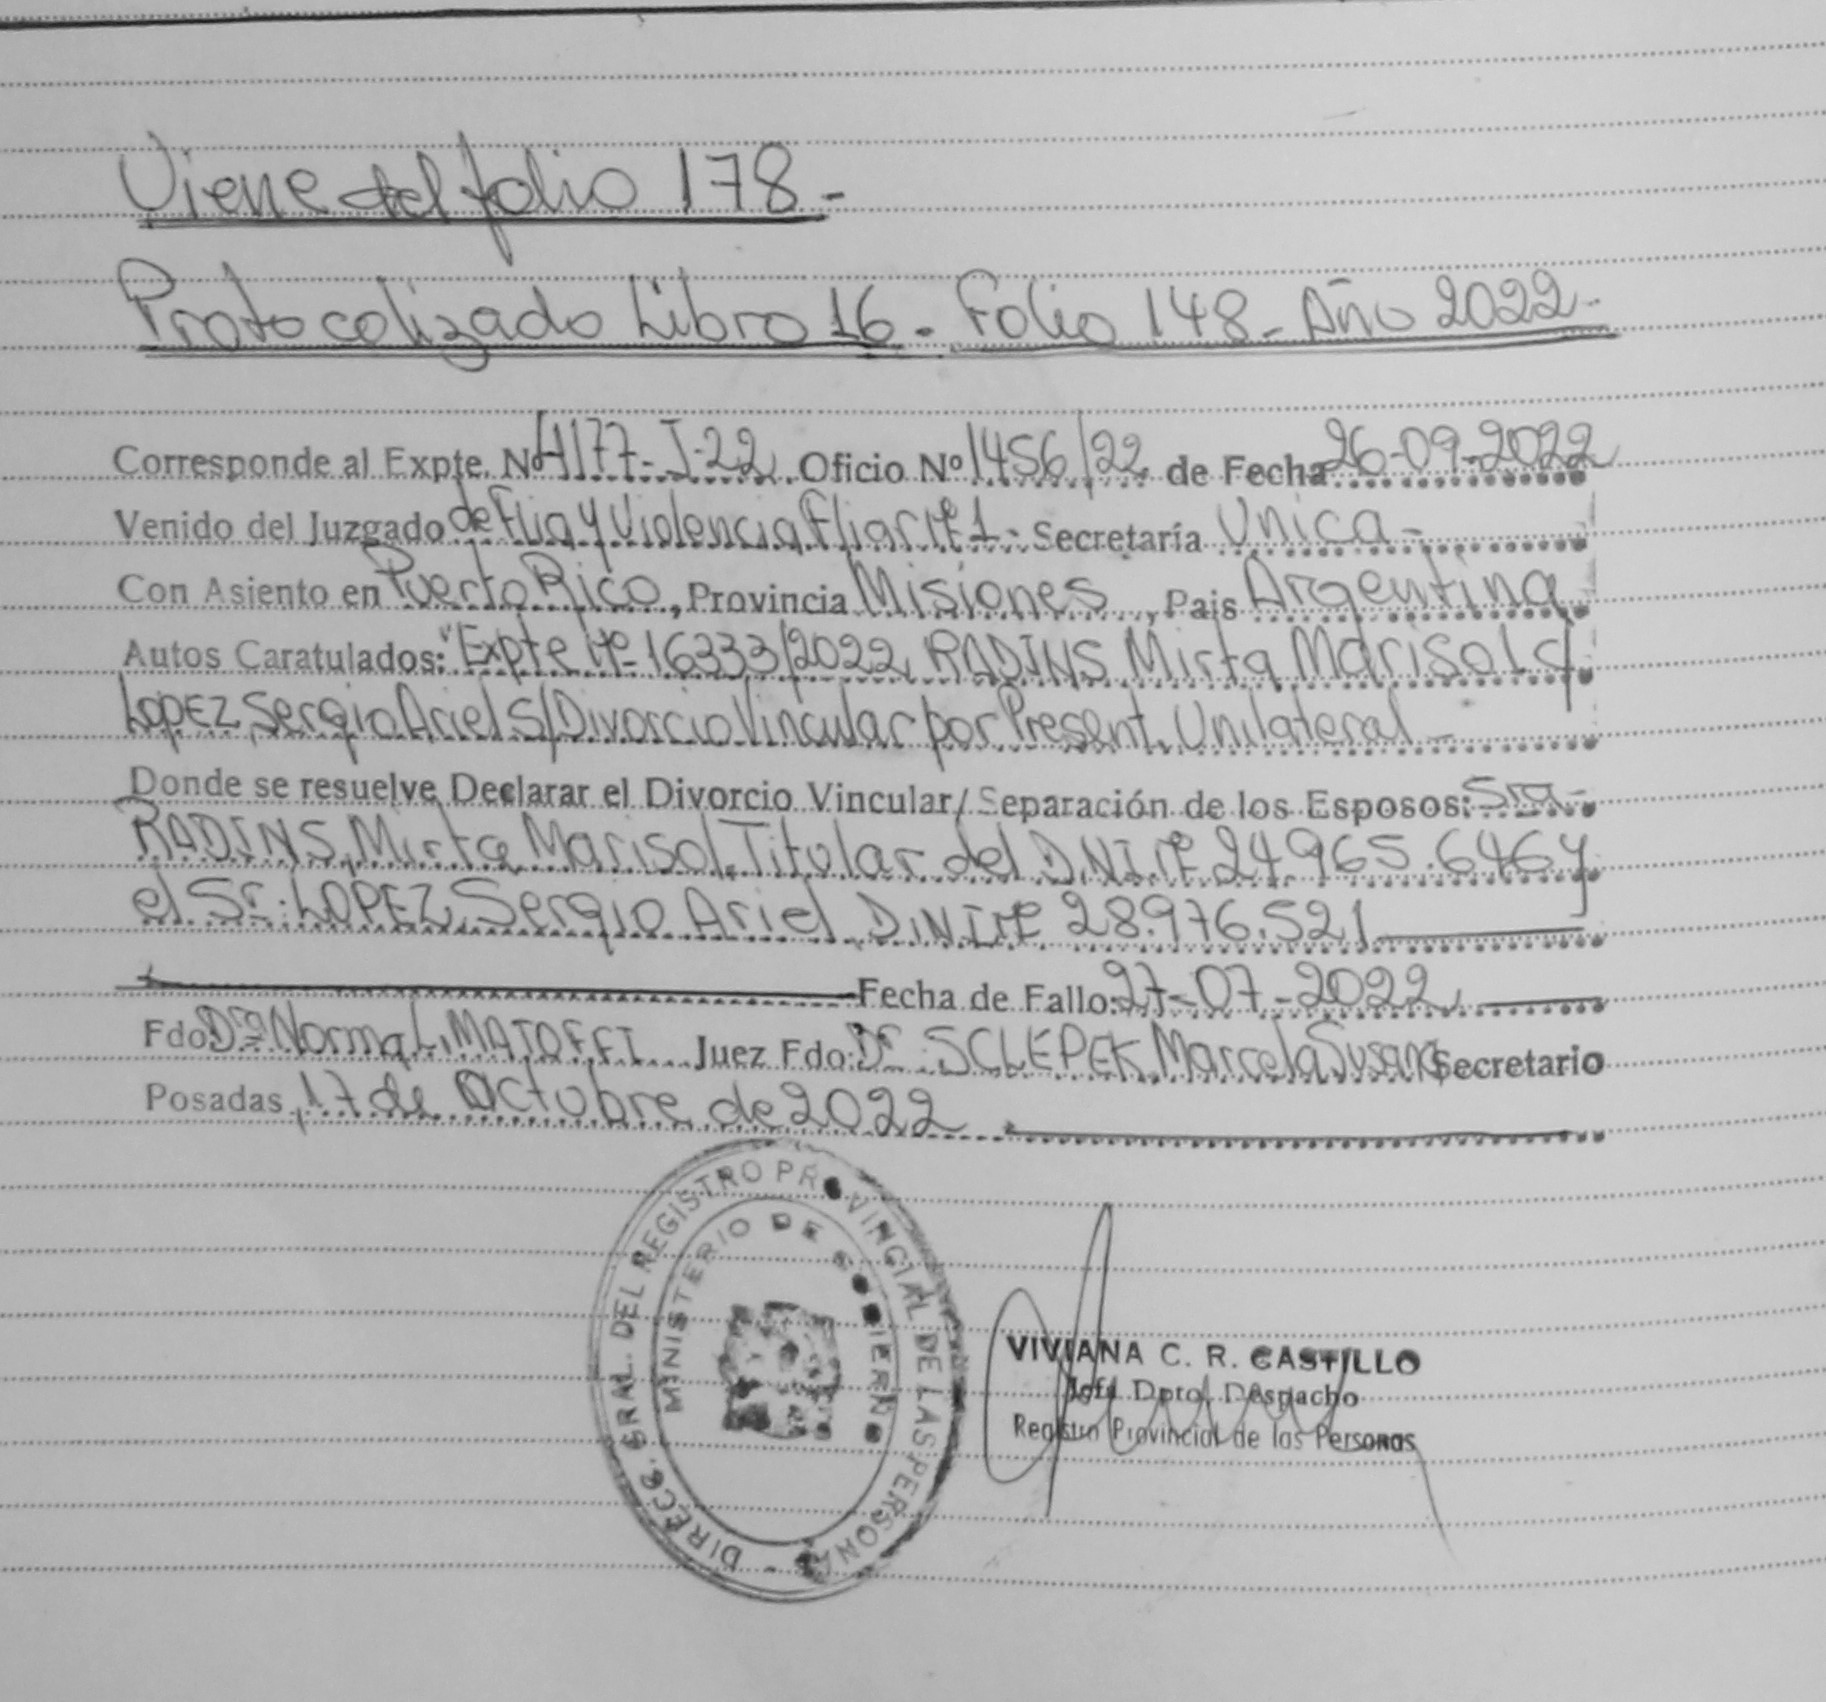 Viene del folio 178-
Protocolizado Libro 16. Folio 148- Año 2022-
Corresponde al Expte. Nº 4177-J-22 Oficio Nº 1456/22 de Fecha 26-09-2022
Venido del Juzgado de Flia y Violencia Fliar Nº 1- Secretaría Unica-
Con Asiento en Puerto Rico, Provincia Misiones, Pais Argentina
Autos Caratulados: "Expte Nº 16333/2022 RADINS Mirta Marisol c/
LOPEZ, Sergio Ariel S/Divorcio Vincular por Present. Unilateral-
Donde se resuelve Declarar el Divorcio Vincular/Separación de los Esposos: Sra-
RADINS, Mirta Marisol, Titular del D.N.I. Nº 24.965.646 y
el Sr. LOPEZ, Sergio Ariel D.N.I Nº 28.976.521
Fecha de Fallo: 27-07-2022
Fdo Dra Norma L. Juez Fdo: Dr. SCLEPEK, Marcela Susana Secretario
Posadas, 17 de Octubre de 2022
DIRECC. GRAL. DEL REGISTRO PROVINCIAL DE LAS PERSONAS -
MINISTERIO DE GOBIERNO
VIVIANA C. R. CASTILLO
Jefa Dpto. Despacho
Registro Provincial de las Personas